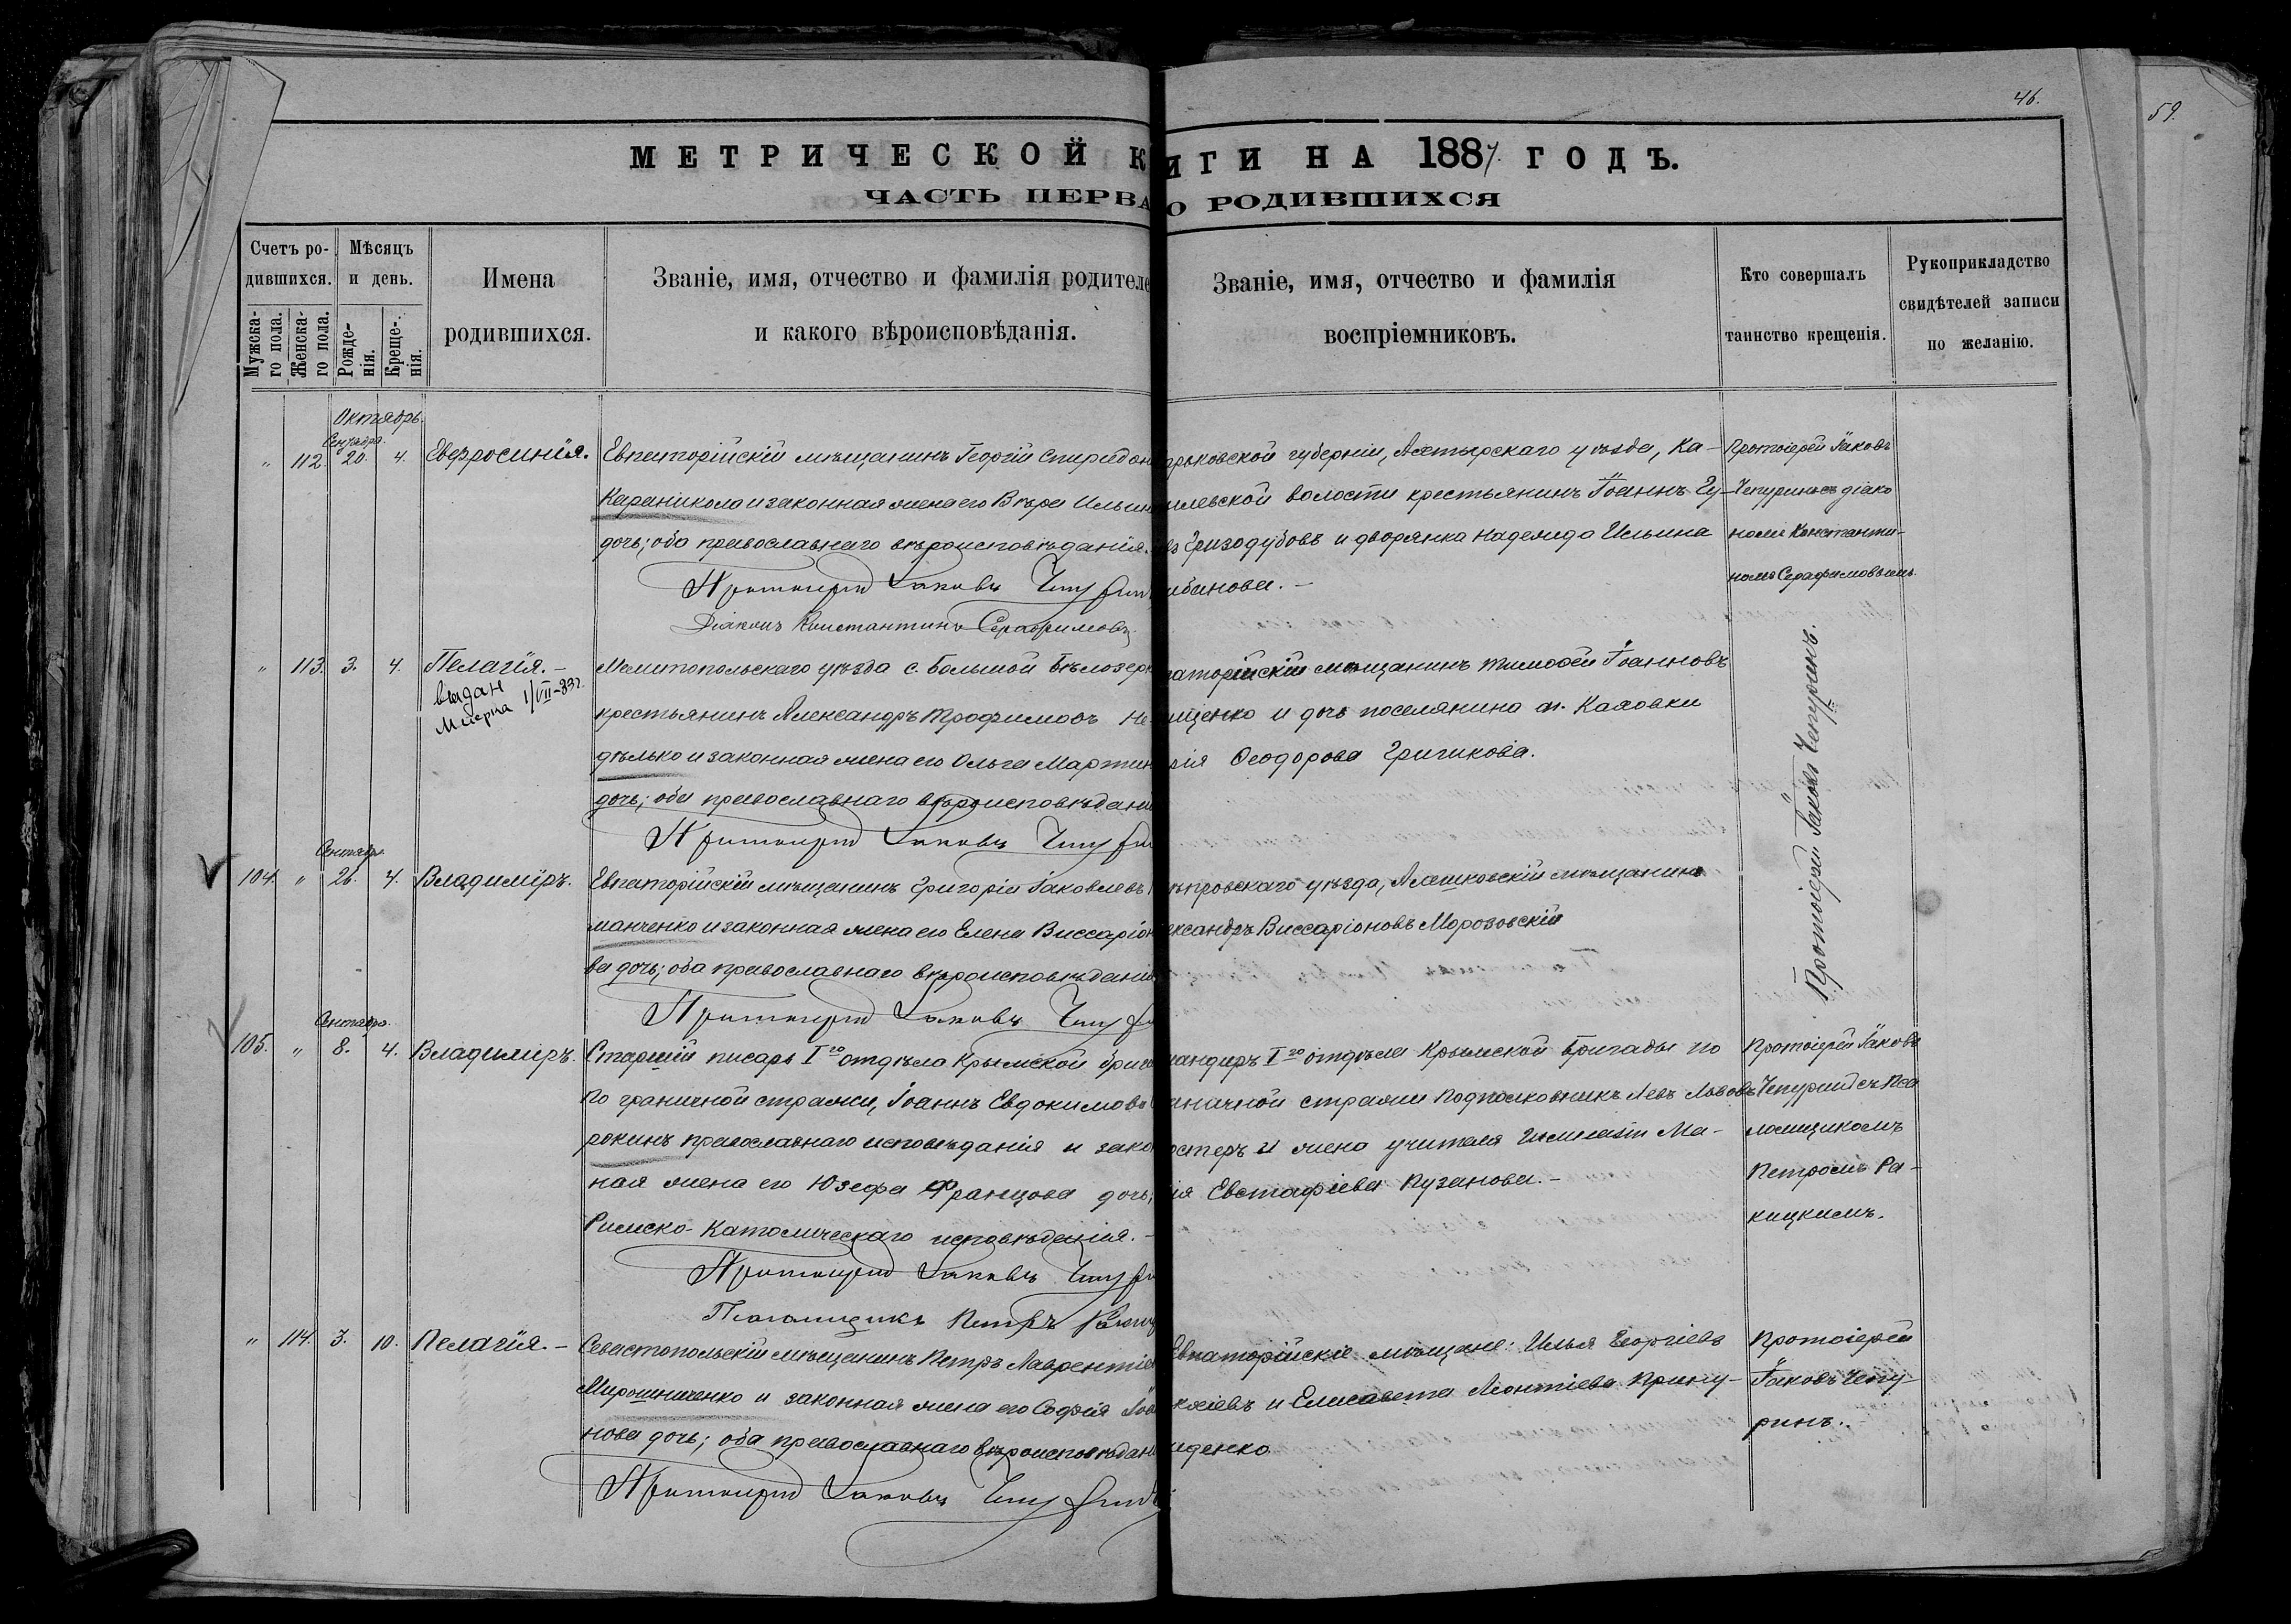 46.
59.
МЕТРИЧЕСКОЙ К
ИГИ НА 1887. ГОДЪ.
ЧАСТЬ ПЕРВА
О РОДИВШИХСЯ
Счетъ ро-
дившихся.
Мужска-
го пола.
Женска-
го пола.
Мѣсяцъ
и день.
Рожде-
нія.
Креще-
нія.
Имена
родившихся.
Званіе, имя, отчество и фамилія родителе
и какого вѣроисповѣданія.
Званіе, имя, отчество и фамилія
воспріемниковъ.
Кто совершалъ
таинство крещенія.
Рукоприкладство
свидѣтелей записи
по желанію.
Октябрь.
Сентября.
" 112. 20. 4. Евфросинія.
Евпаторійскій мѣщанинъ Георгій Спиридон
Караникола и законная жена его Вѣра Ильин
дочь; оба православнаго вѣроисповѣданія.
Протоіерей Іаковъ
Діаконъ Константинъ Серафимовъ.
арьковской губерніи, Ахтырскаго уѣзда, Ка-
илевской волости крестьянинъ Іоаннъ Гу-
Гризодубовъ и дворянка Надежда Ильина
ибанова.-
Протоіерей Іаковъ
Чепуринъ съ діако
номъ Константи-
номъ Серафимовымъ.
" 113. 3. 4. Пелагія.-
выдан
Мнерка 1/VII-83г.
Мелитопольскаго уѣзда с. Большой Бѣлозерк
крестьянинъ Александръ Трофимовъ Не
дѣлько и законная жена его Ольга Мартин
дочь; оба православнаго вѣроисповѣдани
Протоіерей Іаковъ
аторійскій мѣщанинъ Тимофей Іоанновъ
ищенко и дочь поселянина м. Каховки
рія Ѳеодорова Григикова.
Протоіерей Іаковъ Чепуринъ.
Сентября
104. " 26. 4. Владиміръ.
Евпаторійскій мѣщанинъ Григорій Іаковлевъ
манченко и законная жена его Елена Виссаріон
ва дочь; оба православнаго вѣроисповѣдані
Протоіерей Іаковъ
ѣпровскаго уѣзда, Алешковскій мѣщанинъ
ександръ Виссаріоновъ Морозовскій
Сентября.
105. " 8. 4. Владиміръ.
Старшій писарь I го отдѣла Крымской брига
пограничной стражи, Іоаннъ Евдокимовъ
рокинъ православнаго исповѣданія и зако
ная жена его Юзефа Францова дочь;
Римско-Католическаго исповѣданія.-
Протоіерей Іаковъ
Псаломщикъ Петръ
мандиръ I го отдѣла Крымской Бригады по
аничной стражи Подполковникъ Левъ Львовъ
остеръ и жена учителя Гимназіи Ма-
ія Евстафіева Пузанова.-
Протоіерей Іаковъ
Чепуринъ съ Пса
ломщикомъ
Петромъ Ра-
кицкимъ.
" 114. 3. 10. Пелагія.-
Севастопольскій мѣщанинъ Петръ Лаврентіе
Мирошниченко и законная жена его Софія Іоа
нова дочь; оба православнаго вѣроисповѣдан
Протоіерей Іаковъ
Евпаторійскіе мѣщане: Илья Георгіевъ
и Елисавета Леонтіева Прику-
иденко
Протоіерей
Іаковъ Чепу-
ринъ.